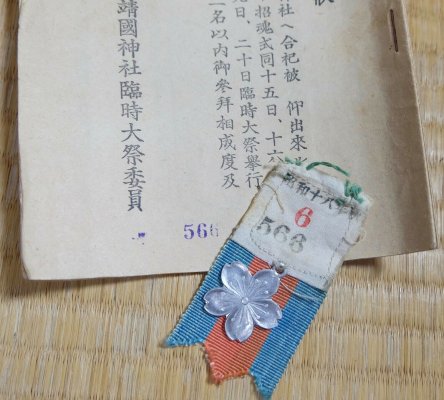 社へ合祀被 仰出來
招魂式同十五日、十六
日、二十日臨時大祭舉行
二名以内御參拜相成度及
靖國神社臨時大祭委員
566
昭和十六
6
566